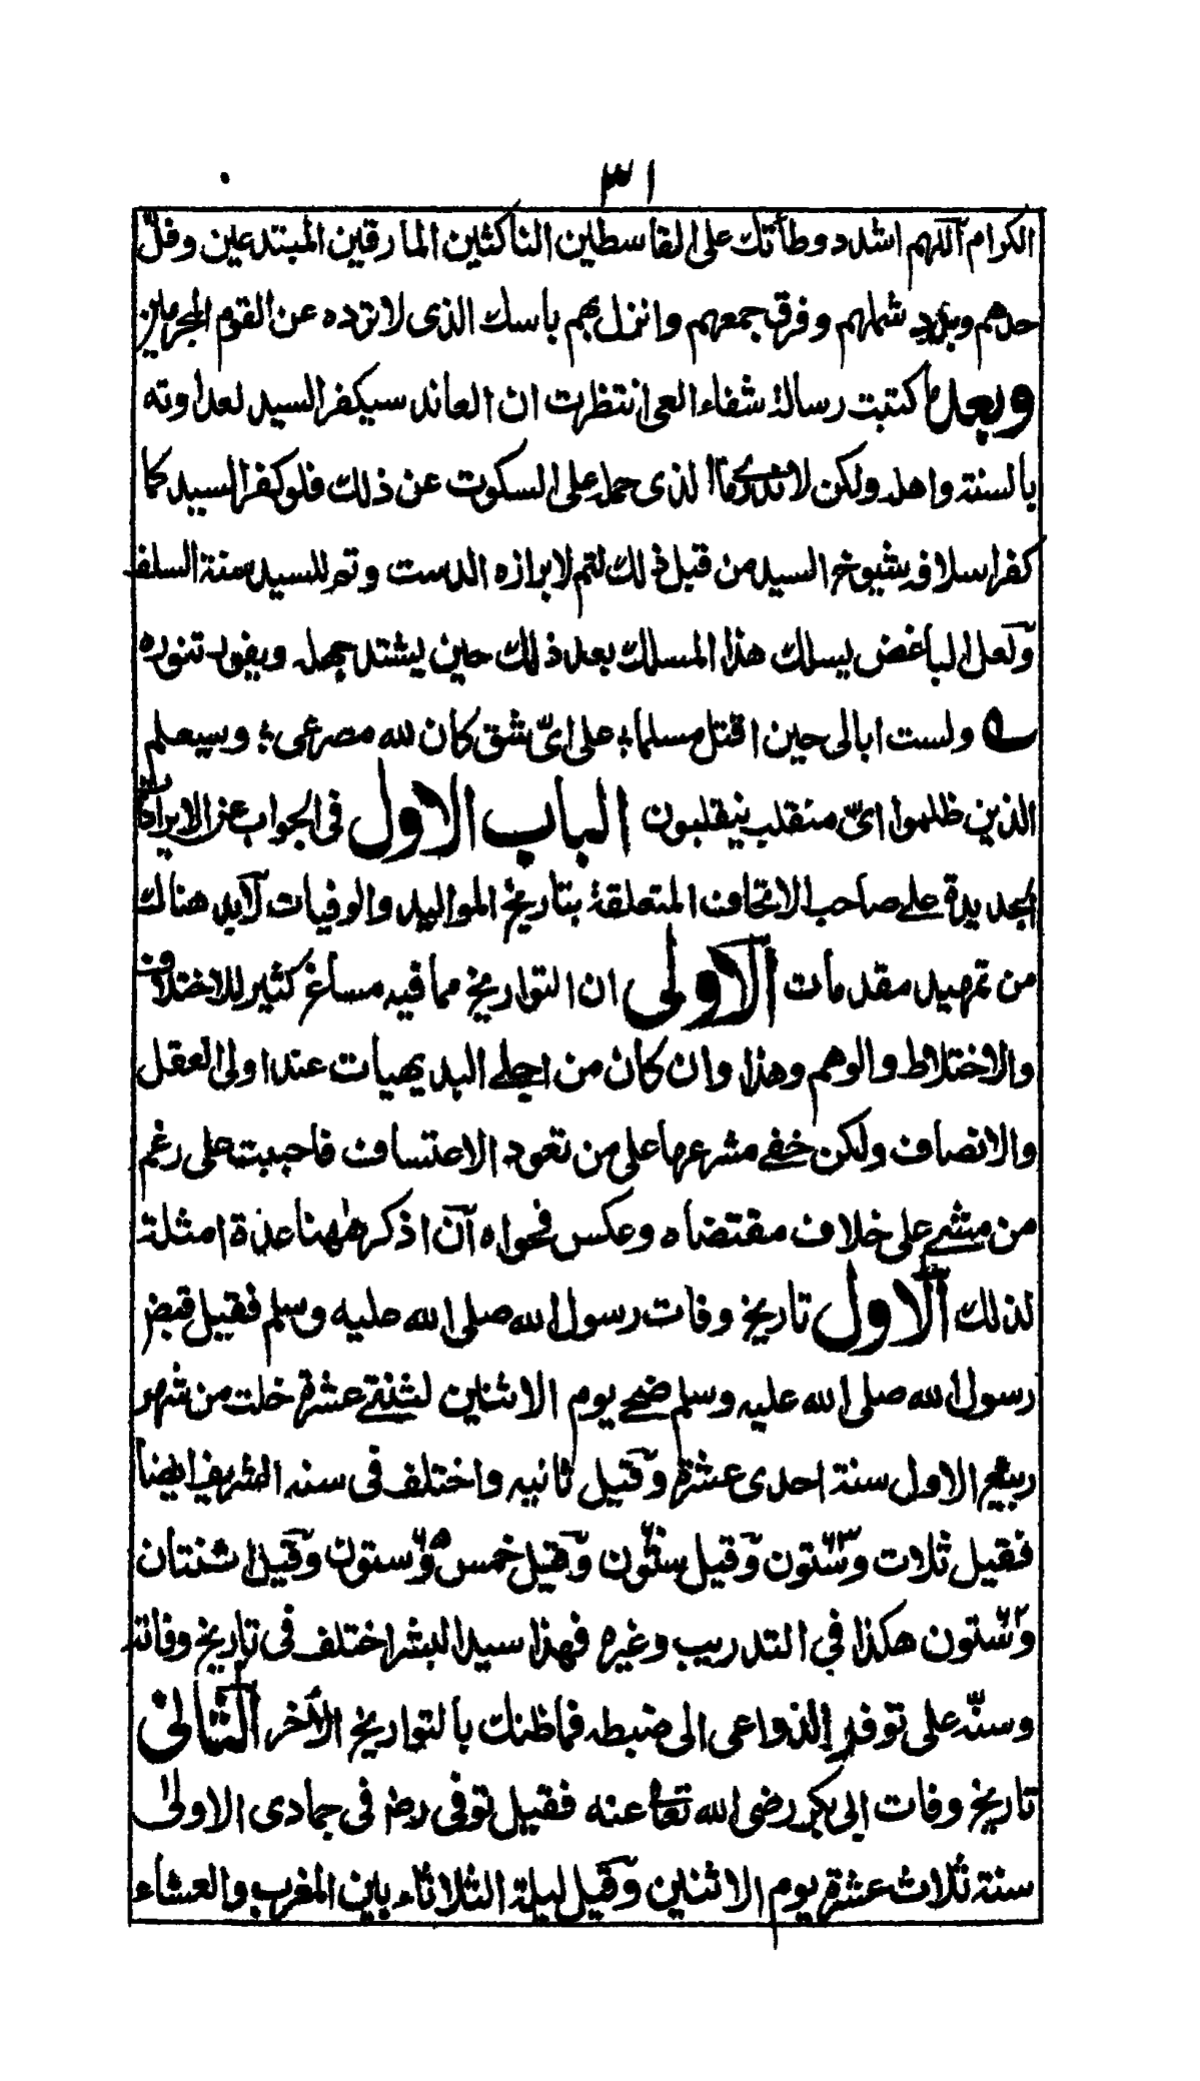 ٣١
الكرام اللهم اشدد وطأتك على القاسطين الناكثين المارقين المبتدعين وفلّ
حدهم وبدد شملهم وفرق جمعهم وانزل بهم باسك الذى لا ترده عن القوم المجرمين
وبعد كتبت رسالة شفاء العى انتظرت ان العاند سيكفر السيد لعداوته
بالسنة واهله ولكن لا ندرى ما الذى حمله على السكوت عن ذلك فلو كفر السيد كما
كفر اسلافه شيوخ السيد من قبل ذلك لتم لابرازه الدست وتم للسيد سنة السلف
ولعل الباغض يسلك هذا المسلك بعد ذلك حين يشتد جهله ويفور تنوره
ولست ابالى حين اقتل مسلما ؛ على اىّ شق كان لله مصرعى ؛ وسيعلم
الذين ظلموا اىّ منقلب ينقلبون الباب الاول فى الجواب عن الايرادات
الجديدة على صاحب الاتحاف المتعلقة بتاريخ المواليد والوفيات لابد هناك
من تمهيد مقدمات الاولى ان التواريخ مما فيه مساغ كثير للاختلاف
والاختلاط والوهم وهذا وان كان من اجلى البديهيات عند اولى العقل
والانصاف ولكن خفى مشرعها على من تعود الاعتساف فاحببت على رغم
من مشى على خلاف مقتضاه وعكس فحواه آن اذكر ههنا عدة امثلة
لذلك الاول تاريخ وفات رسول الله صلى الله عليه وسلم فقيل قبض
رسول الله صلى الله عليه وسلم ضحى يوم الاثنين لثنتى عشرة خلت من شهر
ربيع الاول سنة احدى عشرة وقيل ثانيه واختلف فى سنه الشريف ايضا
فقيل ثلاث وستون وقيل ستون وقيل خمس وستون وقيل اثنتان
وستون هكذا فى التدريب وغيره فهذا سيد البشر اختلف فى تاريخ وفاته
وسنّه على توفر الدواعى الى ضبطه فما ظنك بالتواريخ الأخر الثانى
تاريخ وفات ابى بكر رضى الله تعا عنه فقيل توفى رض فى جمادى الاولى
سنة ثلاث عشرة يوم الاثنين وقيل ليلة الثلاثاء بين المغرب والعشاء